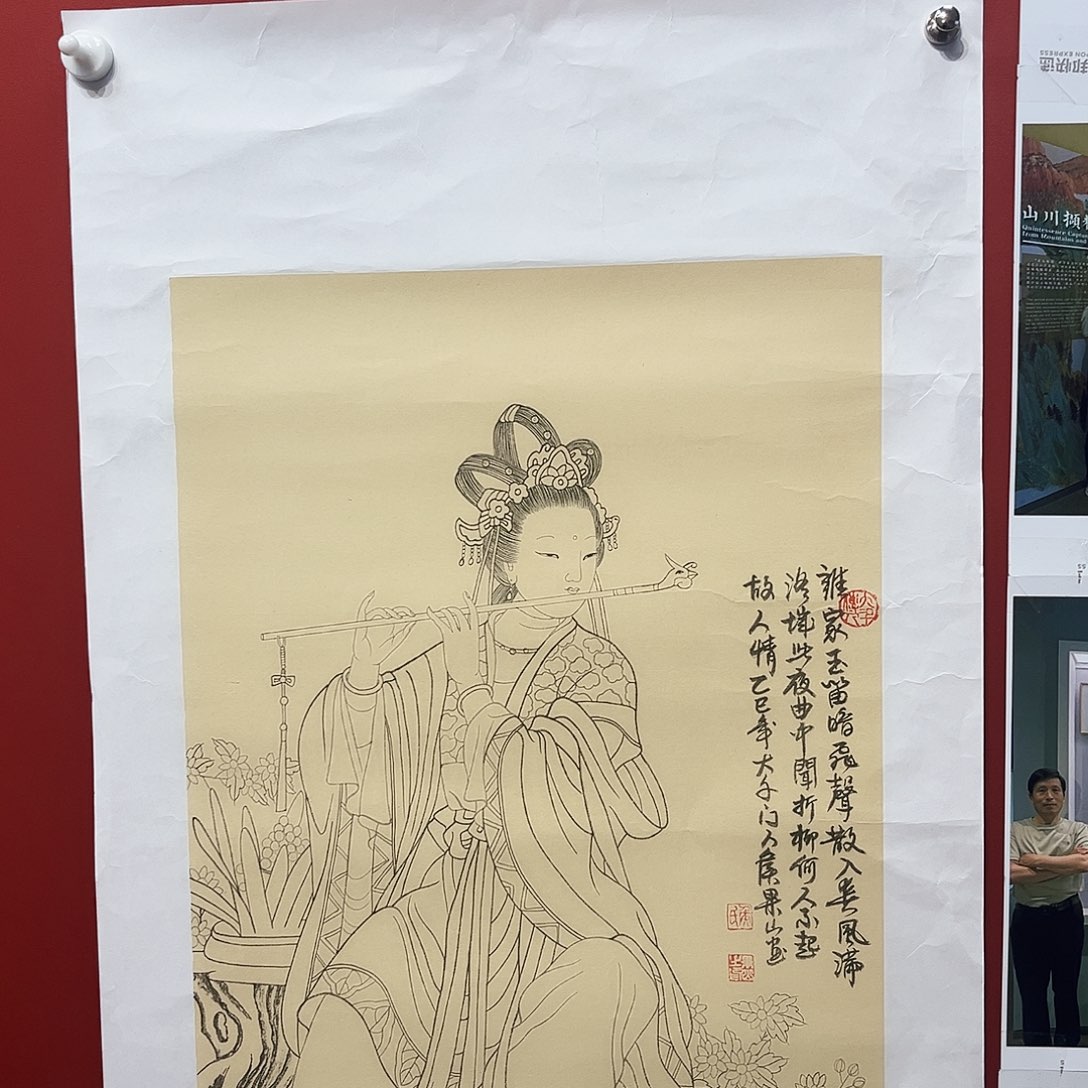 誰家玉笛暗飛聲散入春風滿
洛城此夜曲中聞折柳何人不起
故人情乙巳年大千门人果山画
邦快递
PON EXPRESS
山川擷
Quintessence Captu
from Mountains